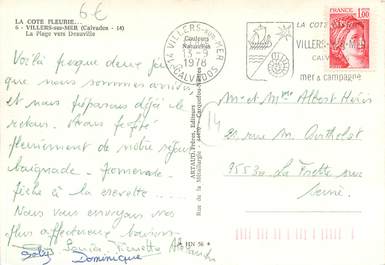 LA COTE FLEURIE...
6 - VILLERS-sur-MER (Calvados - 14)
La Plage vers Deauville
6€
Voilà presque deux
arrivés
et nous préparons déjà le
retour. Nous
pleinement de notre séjour
baignade - promenade -
pêche à la crevette...
Nous vous envoyons nos
plus affectueux baisers
Dominique
Couleurs
Naturelles
ARTAUD Frères, Editeurs
Rue de la Métallurgie - 44470 - Carquefou-Nantes
HN 56
14 VILLERS-sur-MER
13-9
1978
CALVADOS
LA COTE
VILLERS-sur-MER
CALV
mer & campagne
FRANCE
1,00
Mr et Mme Albert
rue M. Berthelot
95530 - La Frette sur
Seine
14